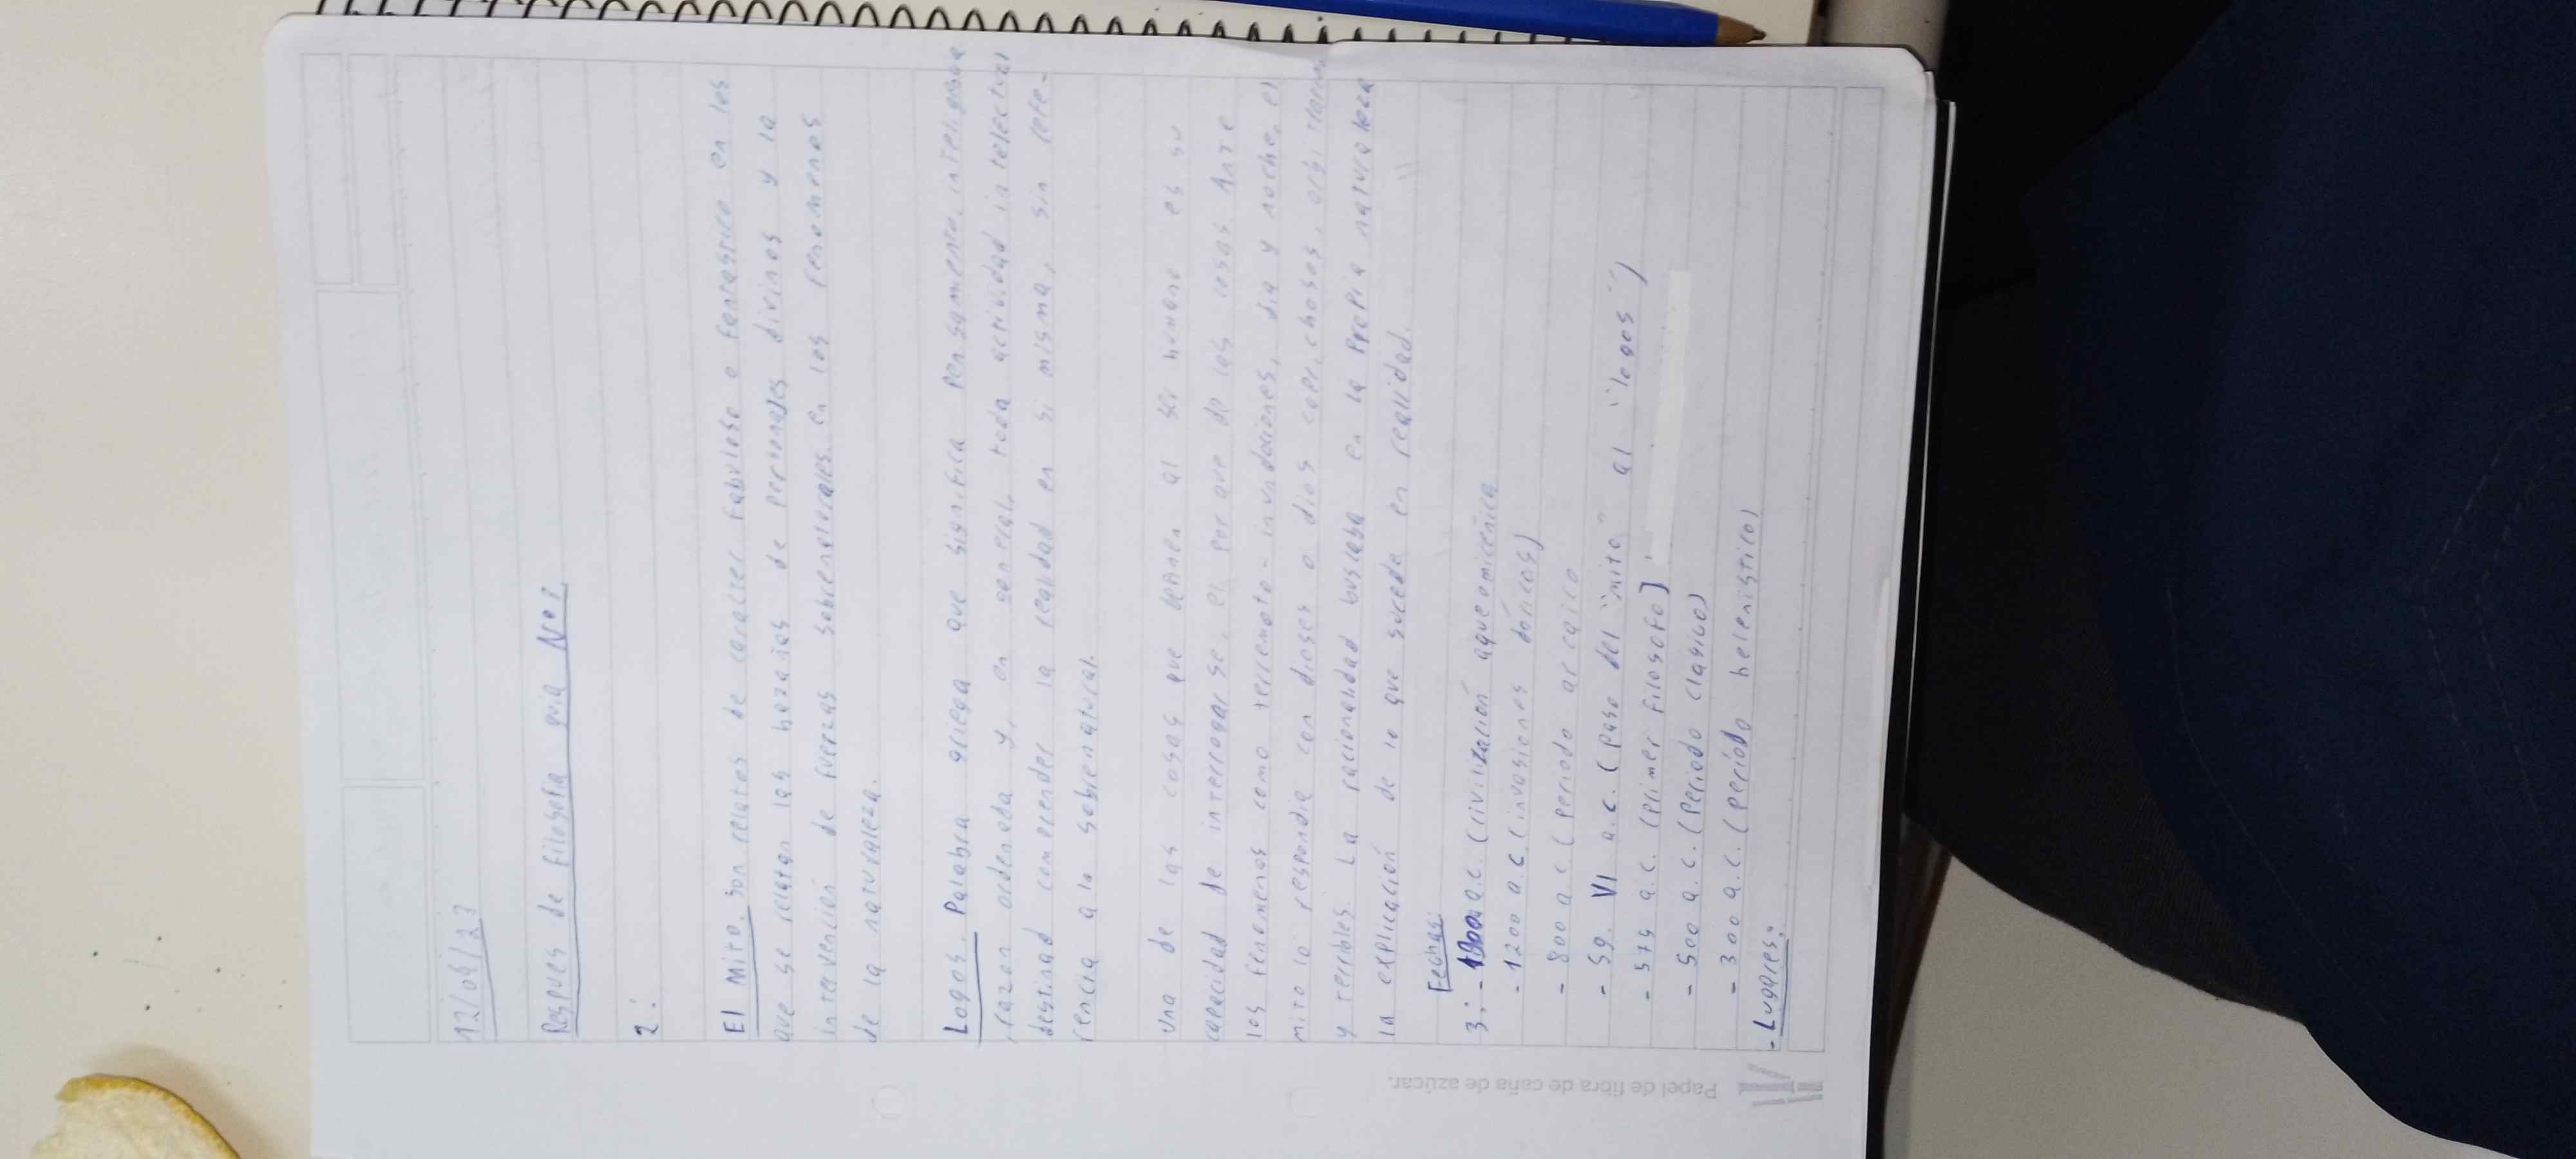 12/04/23
Respues de filosofia guia N°2
2:
El Mito. Son relatos de caracter fabuloso o fantastico en los
que se relatan las hazañas de personajes divinos y la
intervención de fuerzas sobrenaturales en los fenomenos
de la naturaleza.
Logos. Palabra griega que significa pensamiento, inteligencia
razon ordenada y, en general, toda actividad intelectual
destinad comprender la realidad en si misma, sin refe-
rencia a lo sobrenatural.
Una de las cosas que definen al ser humano es su
capacidad de interrogarse, el por que de las cosas. Ante
los fenomenos como terremoto - inundaciones, dia y noche, el
mito lo respondia con dioses o dios caprichosos,
y terribles. La racionalidad buscaba en la propia naturaleza
la explicación de lo que sucede en realidad.
Fechas:
3: - 1900 a.c. (civilización aqueomicénica
- 1200 a.c (invasiones dóricas)
- 800 a.c (periodo arcaico
- sg. VI a.c. (paso del "mito" al "logos")
- 575 a.c. (primer filosofo)
- 500 a.c. (periodo clasico)
- 300 a.c. (período helenístico)
- Lugares:
Papel de fibra de caña de azúcar.